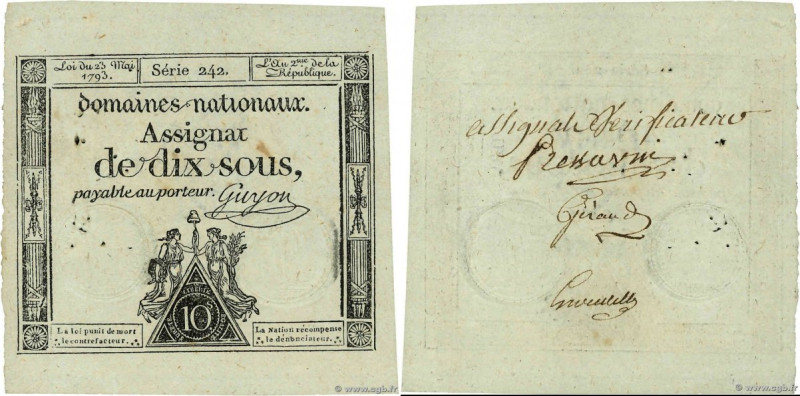 Loi du 23 Mai
1793.
Série 242.
L'An 2me. de la
République.
Domaines nationaux.
Assignat
de dix sous,
payable au porteur.
Guyon
10
La loi punit de mort
le contrefacteur.
La Nation récompense
le dénonciateur.
© www.cgb.fr
assignats Vérificateur
Gérard
© www.cgb.fr